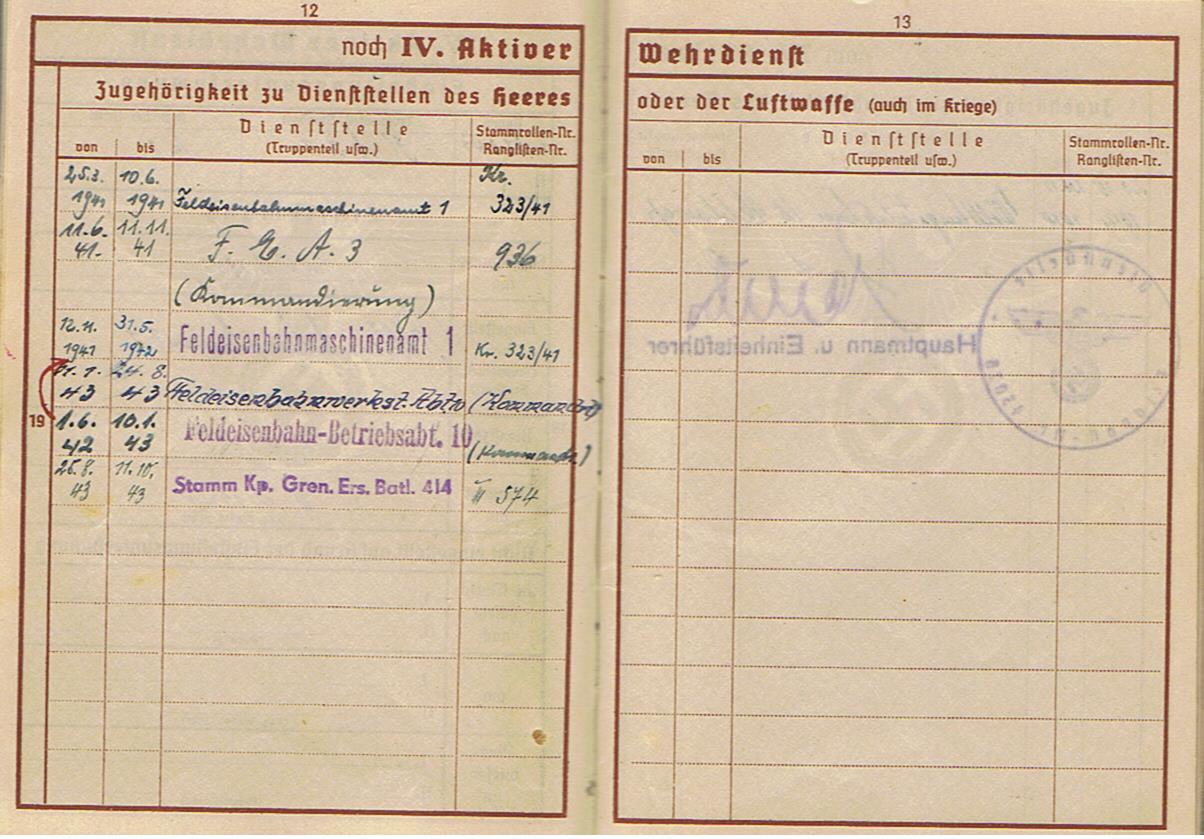 12
noch IV. Aktiver
Zugehörigkeit zu Dienststellen des Heeres
von bis Dienststelle (Truppenteil usw.) Stammrollen-Nr. Ranglisten-Nr.
25.3. 10.6. Kr.
1941 1941 Feldeisenbahnmaschinenamt 1 323/41
11.6. 11.11.
41. 41 F. E. A. 3 936
(Kommandierung)
12.11. 31.5.
1941 1942 Feldeisenbahnmaschinenamt 1 Kr. 323/41
11.1. 24.8.
43 43 Feldeisenbahnwerkst. Abt.
19 1.6. 10.1.
42 43 Feldeisenbahn-Betriebsabt. 10
25.8. 11.10.
43 43 Stamm Kp. Gren. Ers. Batl. 414 III 574
13
Wehrdienst
oder der Luftwaffe (auch im Kriege)
von bis Dienststelle (Truppenteil usw.) Stammrollen-Nr. Ranglisten-Nr.
Hauptmann u. Einheitsführer